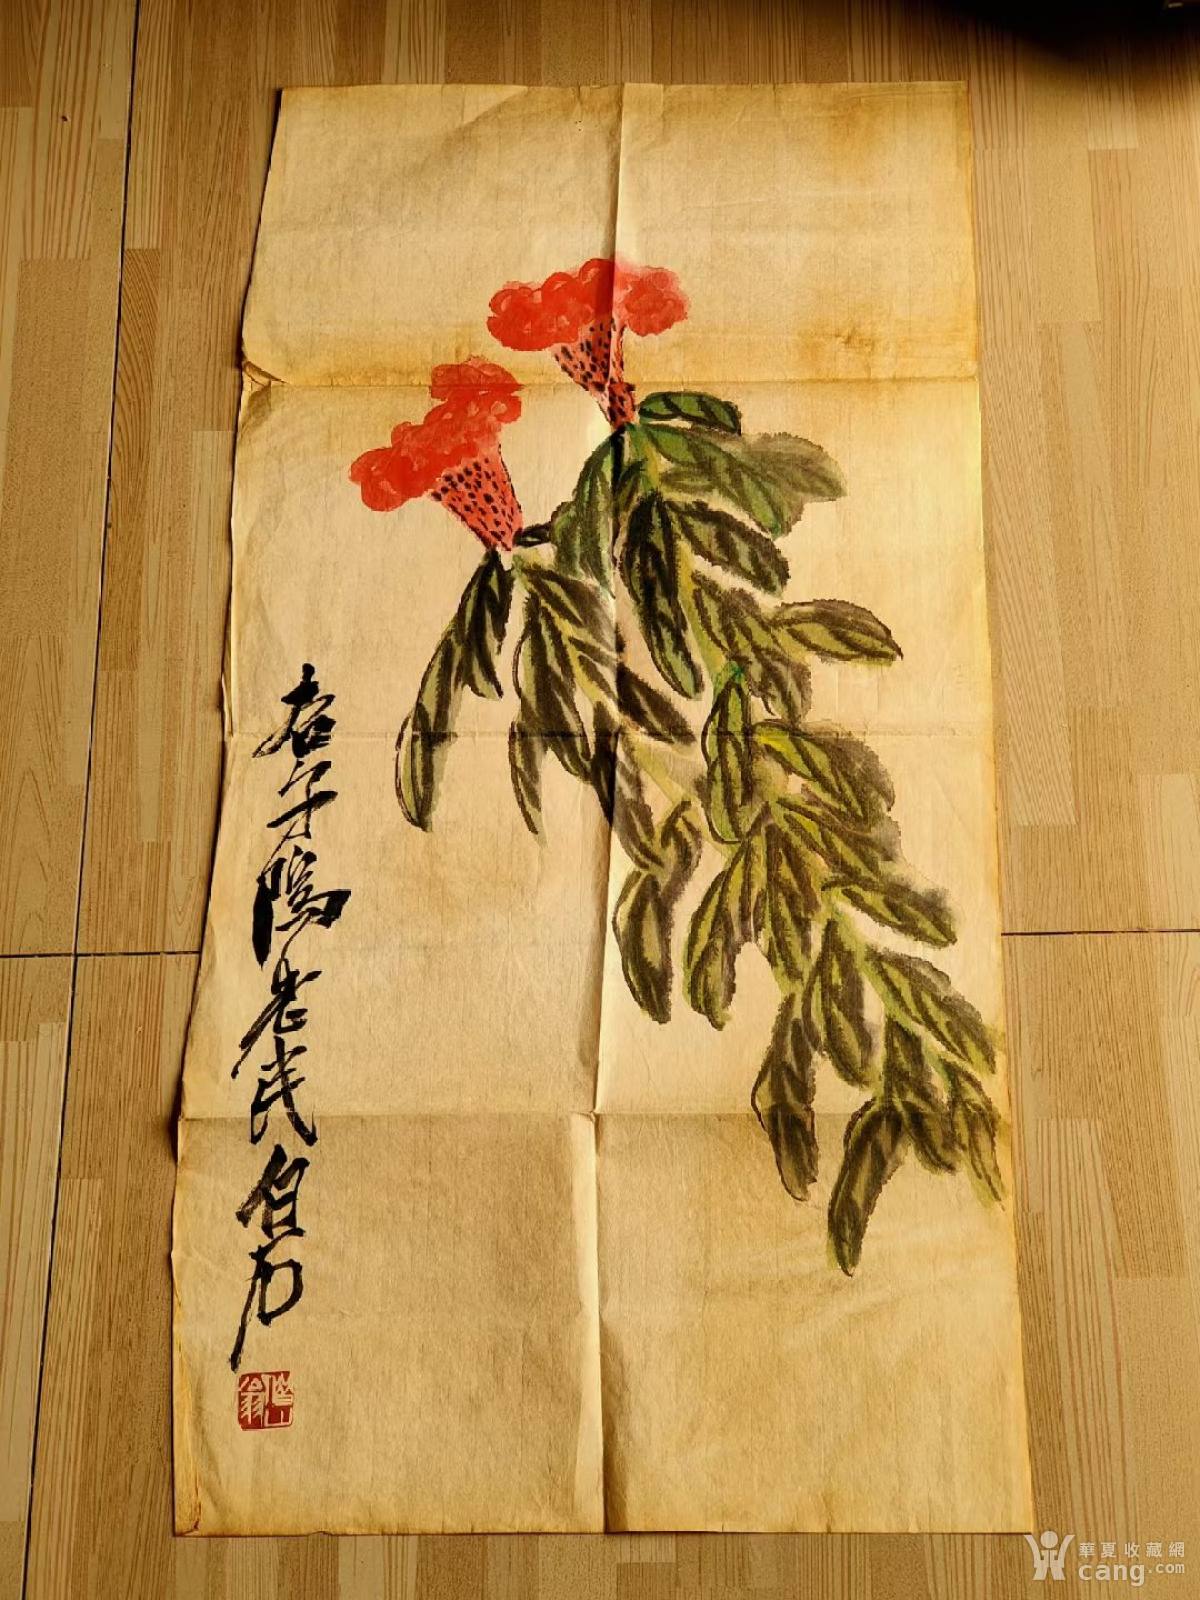 杏子隖老民白石
借山翁
華夏收藏網
cang.com